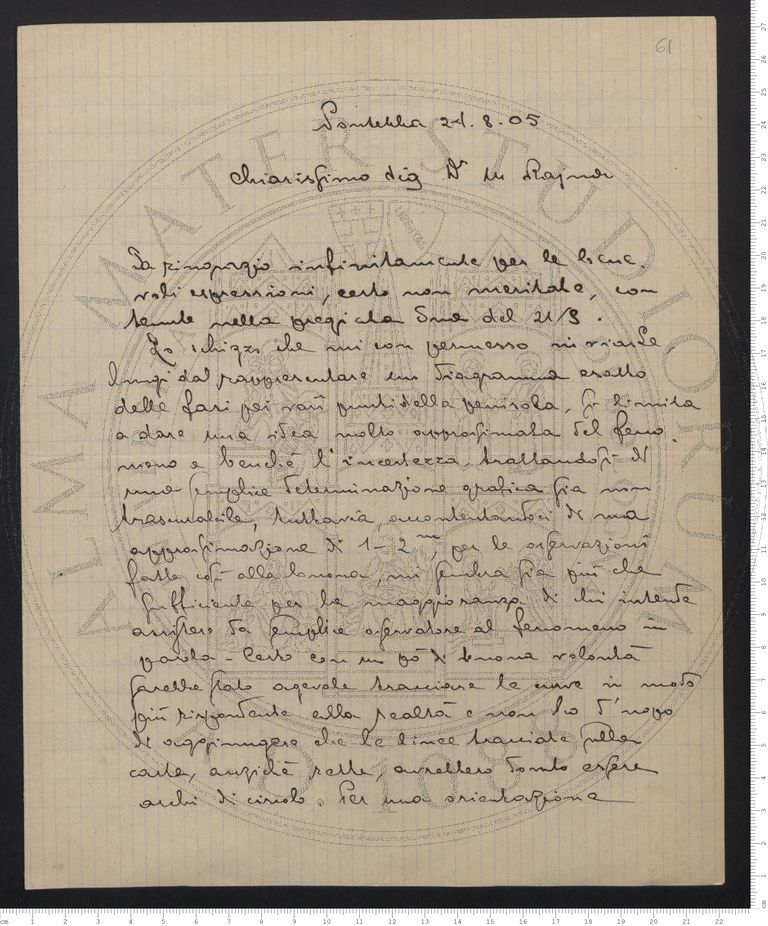 61
Pontebba 24. 8. 05
Chiarissimo Sig Dr M Rajna
La ringrazio infinitamente per le bene
voli espressioni, certo non meritate, con
tenute nella pregiata Sua del 21/8.
Lo schizzo che mi son permesso inviarLe
lungi dal rappresentare un diagramma esatto
delle fasi pei varii punti della penisola, si limita
a dare una idea molto approssimata del feno
meno e benchè l'incertezza, trattandosi di
una semplice determinazione grafica sia non
trascurabile, tuttavia, accontentandoci di una
approssimazione di 1-2m, per le osservazioni
fatte così alla buona, mi sembra sia più che
sufficiente per la maggioranza di chi intende
assistere da semplice osservatore al fenomeno in
parola - Certo con un pò di buona volontà
sarebbe stato agevole tracciare le curve in modo
più rispondente alla realtà e non ho d'uopo
di aggiungere che le linee tracciate sulla
carta, anzichè rette, avrebbero dovuto essere
archi di circolo. Per una orientazione
ALMA MATER STUDIORUM
A.D. 1088